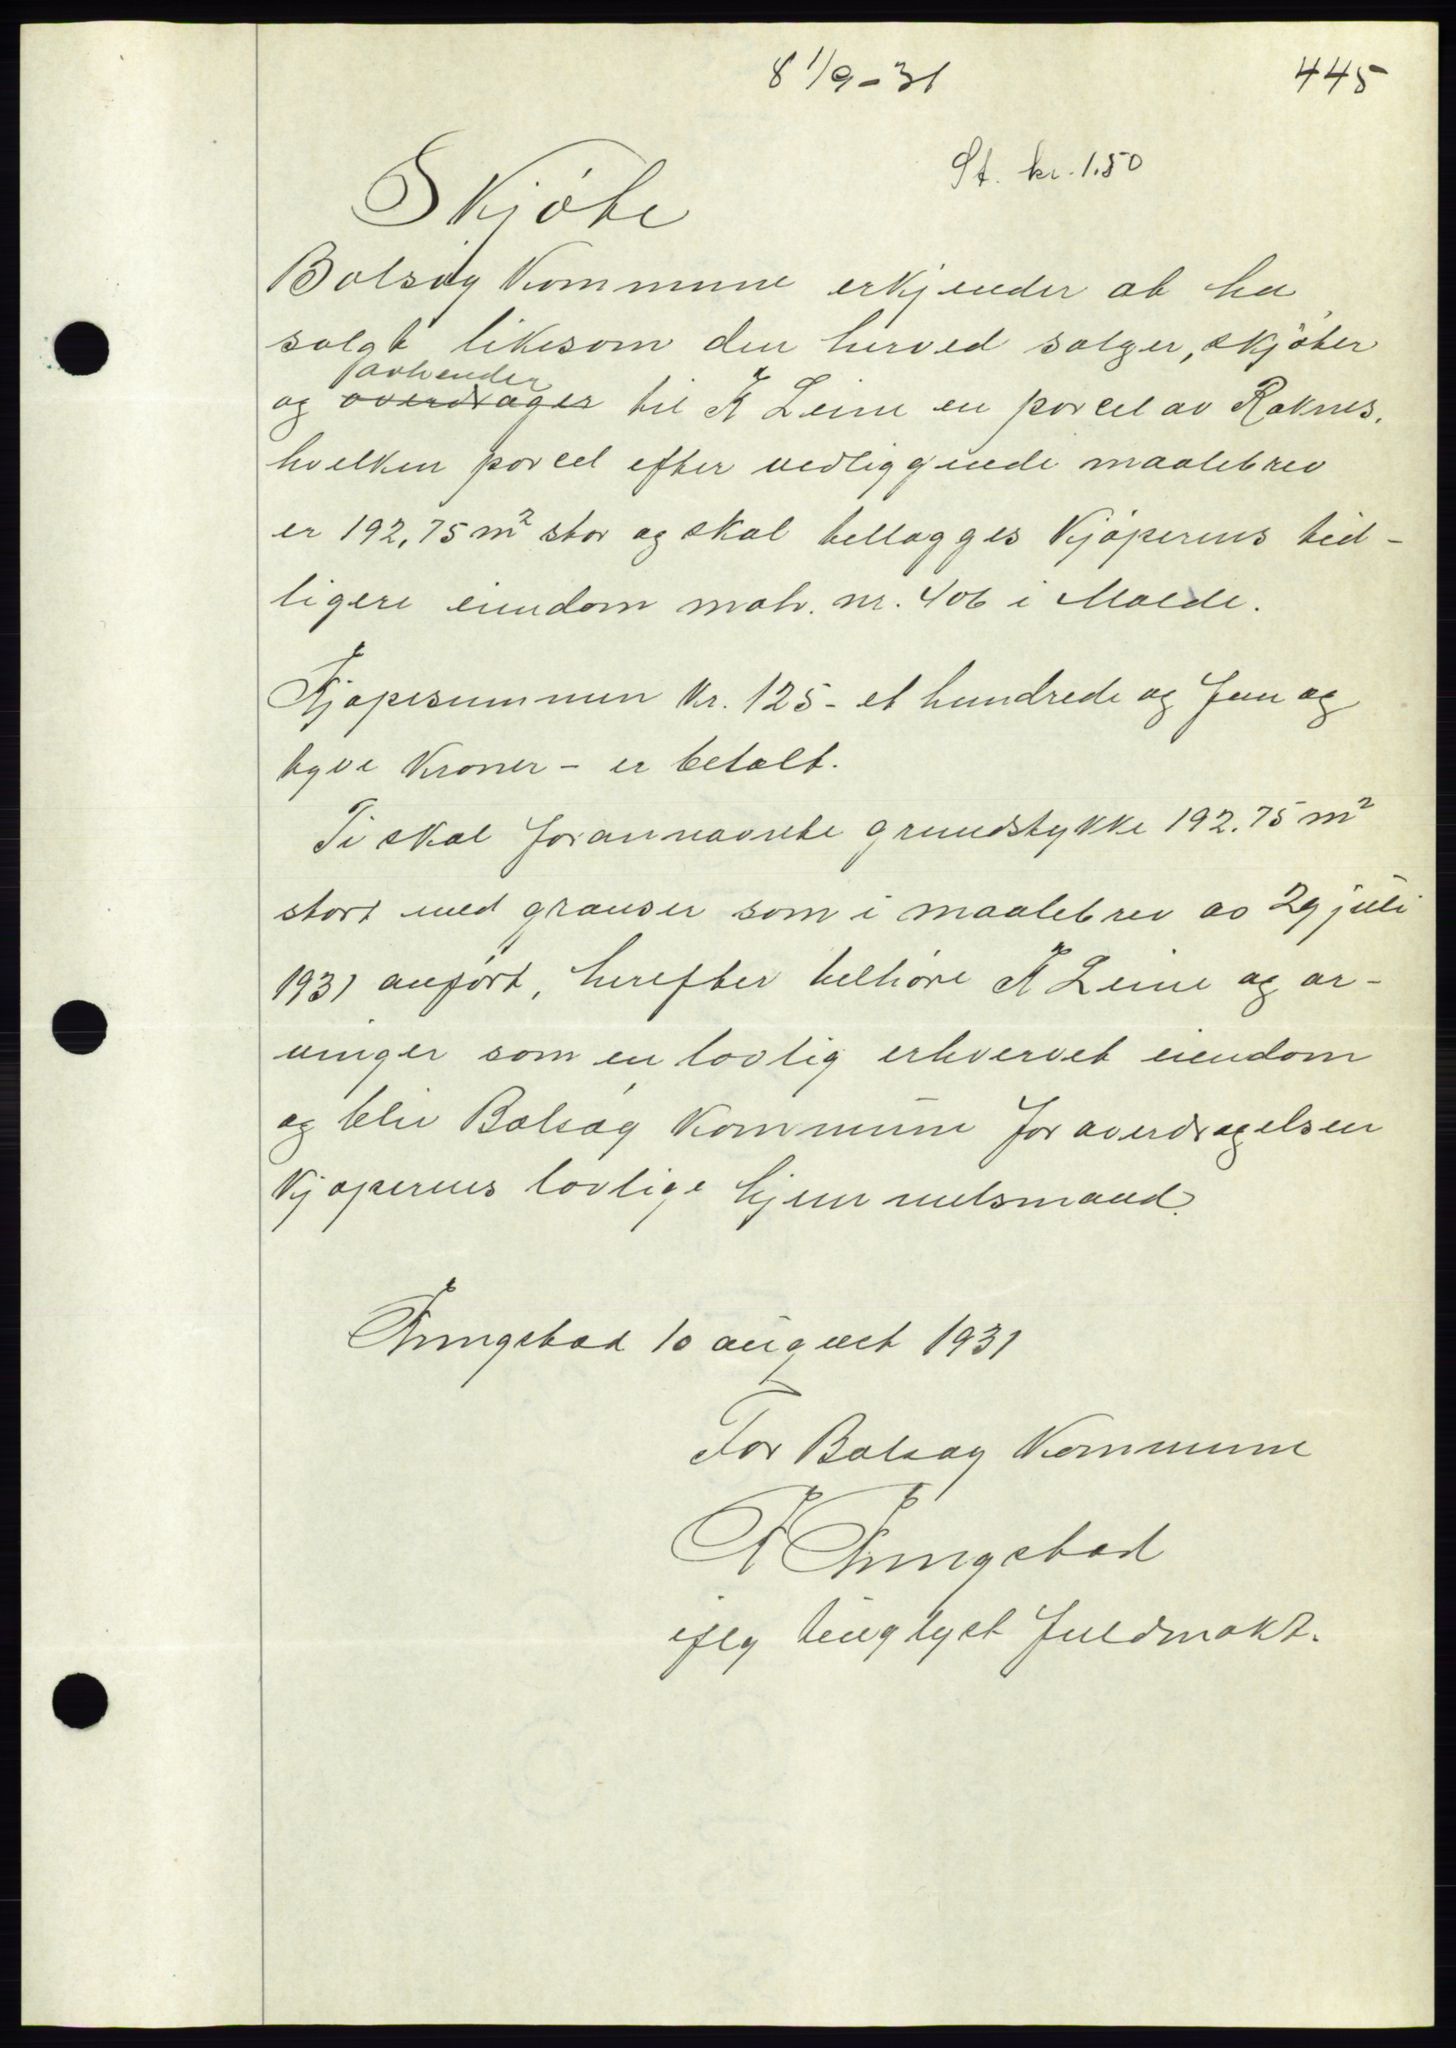 8 1/9-31
445
St. kr. 1.50
Skjøte
Bolsøy Kommune erkjender at ha
solgt likesom den herved sælger, skjøter
avhender
og overdrages til K Leine en parcel av Raknes.
hvilken parcel efter vedliggende maalebrev
er 192,75 m² stor og skal tillægges Kjøperens tid-
ligere eiendom matr. nr. 406 i Molde.
Kjøpesummen kr. 125 - et hundrede og fem og
tyve Kroner - er betalt.
Ti skal forannævnte grundstykke 192.75 m²
stort med grænser som i maalebrev av 29 juli
1931 anført, herefter tilhøre K Leine og ar-
vinger som en lovlig erhvervet eiendom
og blir Bolsøy Kommune for overdragelsen
Kjøperens lovlige hjemmelsmand.
Aringstad 10 august 1931
For Bolsøy Kommune
ifølg tinglyst fuldmakt.